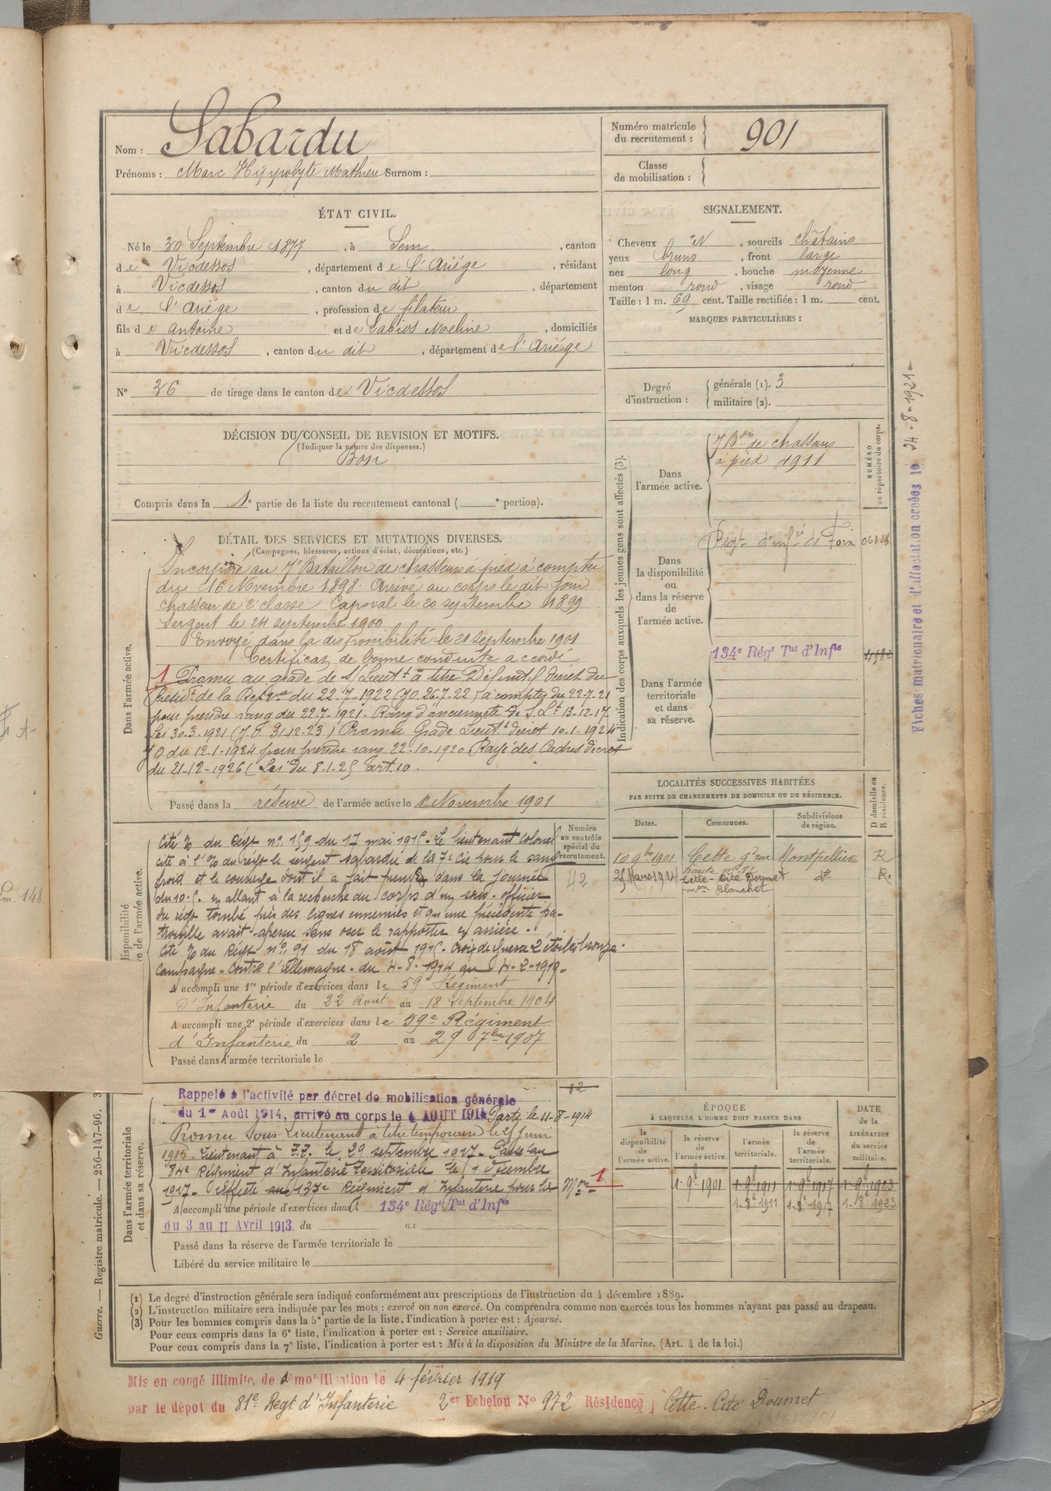 Nom : Sabardu
Prénoms : Marc Hyppolyte Mathieu Surnom :
Numéro matricule du recrutement : 901
Classe de mobilisation :
ÉTAT CIVIL.
Né le 30 Septembre 1877, à Sem, canton
de Vicdessos, département de l'Ariége, résidant
à Vicdessos, canton du dit, département
de l'Ariége, profession de filateur
fils de Antoine et de Sabios Noeline, domiciliés
à Vicdessos, canton du dit, département de l'Ariége
N° 36 de tirage dans le canton de Vicdessos
SIGNALEMENT.
Cheveux id, sourcils châtains
yeux bruns, front large
nez long, bouche moyenne
menton rond, visage rond
Taille : 1 m. 69 cent. Taille rectifiée : 1 m. cent.
MARQUES PARTICULIÈRES :
Degré d'instruction : générale (1). 3
militaire (2).
DÉCISION DU CONSEIL DE REVISION ET MOTIFS.
(Indiquer la nature des dispenses.)
Bon
Compris dans la 1e partie de la liste du recrutement cantonal ( e portion).
DÉTAIL DES SERVICES ET MUTATIONS DIVERSES.
(Campagnes, blessures, actions d'éclat, décorations, etc.)
Dans l'armée active.
Incorporé au 7e Bataillon de chasseurs à pied à compter
du 16 Novembre 1898. Arrivé au corps le dit jour
chasseur de 2e classe. Caporal le 20 septembre 1899
Sergent le 24 septembre 1900
Envoyé dans la disponibilité le 21 septembre 1901
Certificat de bonne conduite accordé
1 Promu au grade de S/Lieutt à titre Définitif décret du
Présidt de la Répque du 22.7.1922 (JO. 367.22) à compter du 22.7.21
pour prendre rang du 22.7.1921. Rang d'ancienneté de S.Lt 13.12.17
Promu Grade Lieutt décret 10.1.1924
JO du 12.1.1924 pour prendre rang 22.10.1920 Rayé des Cadres décret
du 21-12-1926 (Loi du 8.1.25) art.10.
Passé dans la réserve de l'armée active le 1 Novembre 1901
Indication des corps auxquels les jeunes gens sont affectés (3).
NUMÉRO au répertoire du corps.
Dans l'armée active.
7 Bon de chasseurs
à pied 1911
Dans la disponibilité ou dans la réserve de l'armée active.
Régt d'infie de Foix
Dans l'armée territoriale et dans sa réserve.
134e Régt Tal d'Infie
Fiches matriculaire et d'affectation créées le 24-8-1921
LOCALITÉS SUCCESSIVES HABITÉES
PAR SUITE DE CHANGEMENTS DE DOMICILE OU DE RÉSIDENCE.
D domicile ou R résidence.
Dates. Communes. Subdivisions de région.
10 9bre 1901 Cette Montpellier R
25 Mars 1921 Cette Cité Doumet mon Blanchet d° R.
Numéro au contrôle spécial du recrutement.
42
Cité % du Régt n° 159 du 17 mai 1915. Le lieutenant Colonel
cite à l'% du regt le sergent Sabardu de la 7e Cie pour le sang
froid et le courage dont il a fait preuve dans la journée
du 10.5. en allant à la recherche du corps d'un sous-officier
du régt tombé près des lignes ennemies et qu'une précédente pa-
trouille avait aperçu sans oser le rapporter en arrière.
Cité % du Régt n° 91 du 18 août 1915. Croix de Guerre 2 étoiles bronze.
Campagne contre l'Allemagne du 4-8-1914 au 4-2-1919
A accompli une 1re période d'exercices dans le 59e Régiment
d'Infanterie du 22 Août au 18 Septembre 1904
A accompli une 2e période d'exercices dans le 59e Régiment
d'Infanterie du 2 au 29 7bre 1907
Passé dans l'armée territoriale le
Dans l'armée territoriale et dans sa réserve.
Rappelé à l'activité par décret de mobilisation générale
du 1er Août 1914, arrivé au corps le 4 AOUT 1914 Parti le 11-8-1914
Promu Sous Lieutenant à titre temporaire le 25 juin
1915. Lieutenant à T.T. le 29 septembre 1917. Passé au
84e Régiment d'Infanterie territoriale le 1 Décembre
1917. Affecté au 137e Régiment d'Infanterie pour la Mon 1
A accompli une période d'exercices dans l 134e Régt Tal d'Infie
du 3 au 11 Avril 1913 du au
Passé dans la réserve de l'armée territoriale le
Libéré du service militaire le
ÉPOQUE
À LAQUELLE L'HOMME DOIT PASSER DANS
la disponibilité de l'armée active. la réserve de l'armée active. l'armée territoriale. la réserve de l'armée territoriale.
DATE de la LIBÉRATION du service militaire.
1.9bre 1901 1.9bre 1911 1.9bre 1917 1.9bre 1923
1.8bre 1911 1.8bre 1917 1.8bre 1923
(1) Le degré d'instruction générale sera indiqué conformément aux prescriptions de l'instruction du 4 décembre 1889.
(2) L'instruction militaire sera indiquée par les mots : exercé ou non exercé. On comprendra comme non exercés tous les hommes n'ayant pas passé au drapeau.
(3) Pour les hommes compris dans la 5e partie de la liste, l'indication à porter est : Ajourné.
Pour ceux compris dans la 6e liste, l'indication à porter est : Service auxiliaire.
Pour ceux compris dans la 7e liste, l'indication à porter est : Mis à la disposition du Ministre de la Marine. (Art. 4 de la loi.)
Guerre. — Registre matricule. — 256-147-96.
Mis en congé illimité de démobilisation le 4 février 1919
par le dépot du 81e Regt d'Infanterie 2er Echelon No 972 Résidence Cette. Cité Doumet